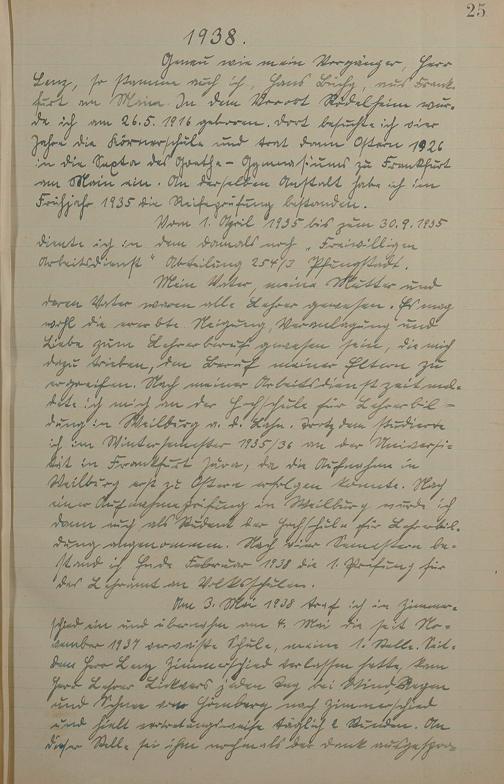 25
1938.
Genau wie mein Vorgänger, Herr
Lenz, so stamme auch ich, Hans Buchy, aus Frank-
furt am Main. In dem Vorort Rödelheim wur-
de ich am 26.5.1916 geboren. Dort besuchte ich vier
Jahre die Körnerschule und trat dann Ostern 1926
in die Sexta des Goethe-Gymnasiums zu Frankfurt
am Main ein. An derselben Anstalt habe ich im
Frühjahr 1935 die Reifeprüfung bestanden.
Vom 1. April 1935 bis zum 30.9.1935
diente ich in dem damals noch „Freiwilligen
Arbeitsdienst" Abteilung 254/3 Pfungstadt.
Mein Vater, meine Mutter und
deren Vater waren alle Lehrer gewesen. Es mag
wohl die ererbte Neigung, Veranlagung und
Liebe zum Lehrerberuf gewesen sein, die mich
dazu trieben, den Beruf meiner Eltern zu
ergreifen. Nach meiner Arbeitsdienstzeit mel-
dete ich mich an der Hochschule für Lehrerbil-
dung in Weilburg a. d. Lahn. Trotzdem studierte
ich im Wintersemester 1935/36 an der Universi-
tät in Frankfurt Jura, da die Aufnahme in
Weilburg erst zu Ostern erfolgen konnte. Nach
einer Aufnahmeprüfung in Weilburg wurde ich
dann auch als Student der Hochschule für Lehrerbil-
dung angenommen. Nach vier Semestern be-
stand ich Ende Februar 1938 die 1. Prüfung für
das Lehramt an Volksschulen.
Am 3. Mai 1938 traf ich in Zimmer-
schied ein und übernahm am 4. Mai die seit No-
vember 1937 verwaiste Schule, meine 1. Stelle. Seit-
dem Herr Lenz Zimmerschied verlassen hatte, kam
Herr Lehrer jeden Tag bei Wind, Regen
und Schnee von Hömberg nach Zimmerschied
und hielt vertretungsweise täglich 2 Stunden. An
dieser Stelle sei ihm nochmals der Dank ausgespro-